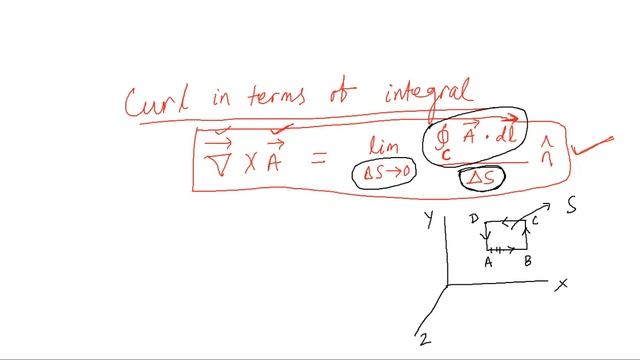 Curl in terms of integral
∇⃗ × A⃗ = lim ΔS→0 ∮C A⃗ · dl⃗ / ΔS n̂
Y D C S
A B
X
Z